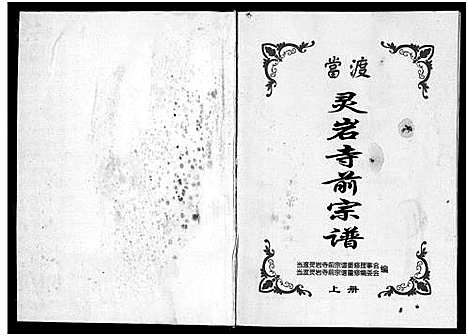 當渡
灵岩寺前宗谱
当渡灵岩寺前宗谱重修理事会
当渡灵岩寺前宗谱重修编委会
编
上册